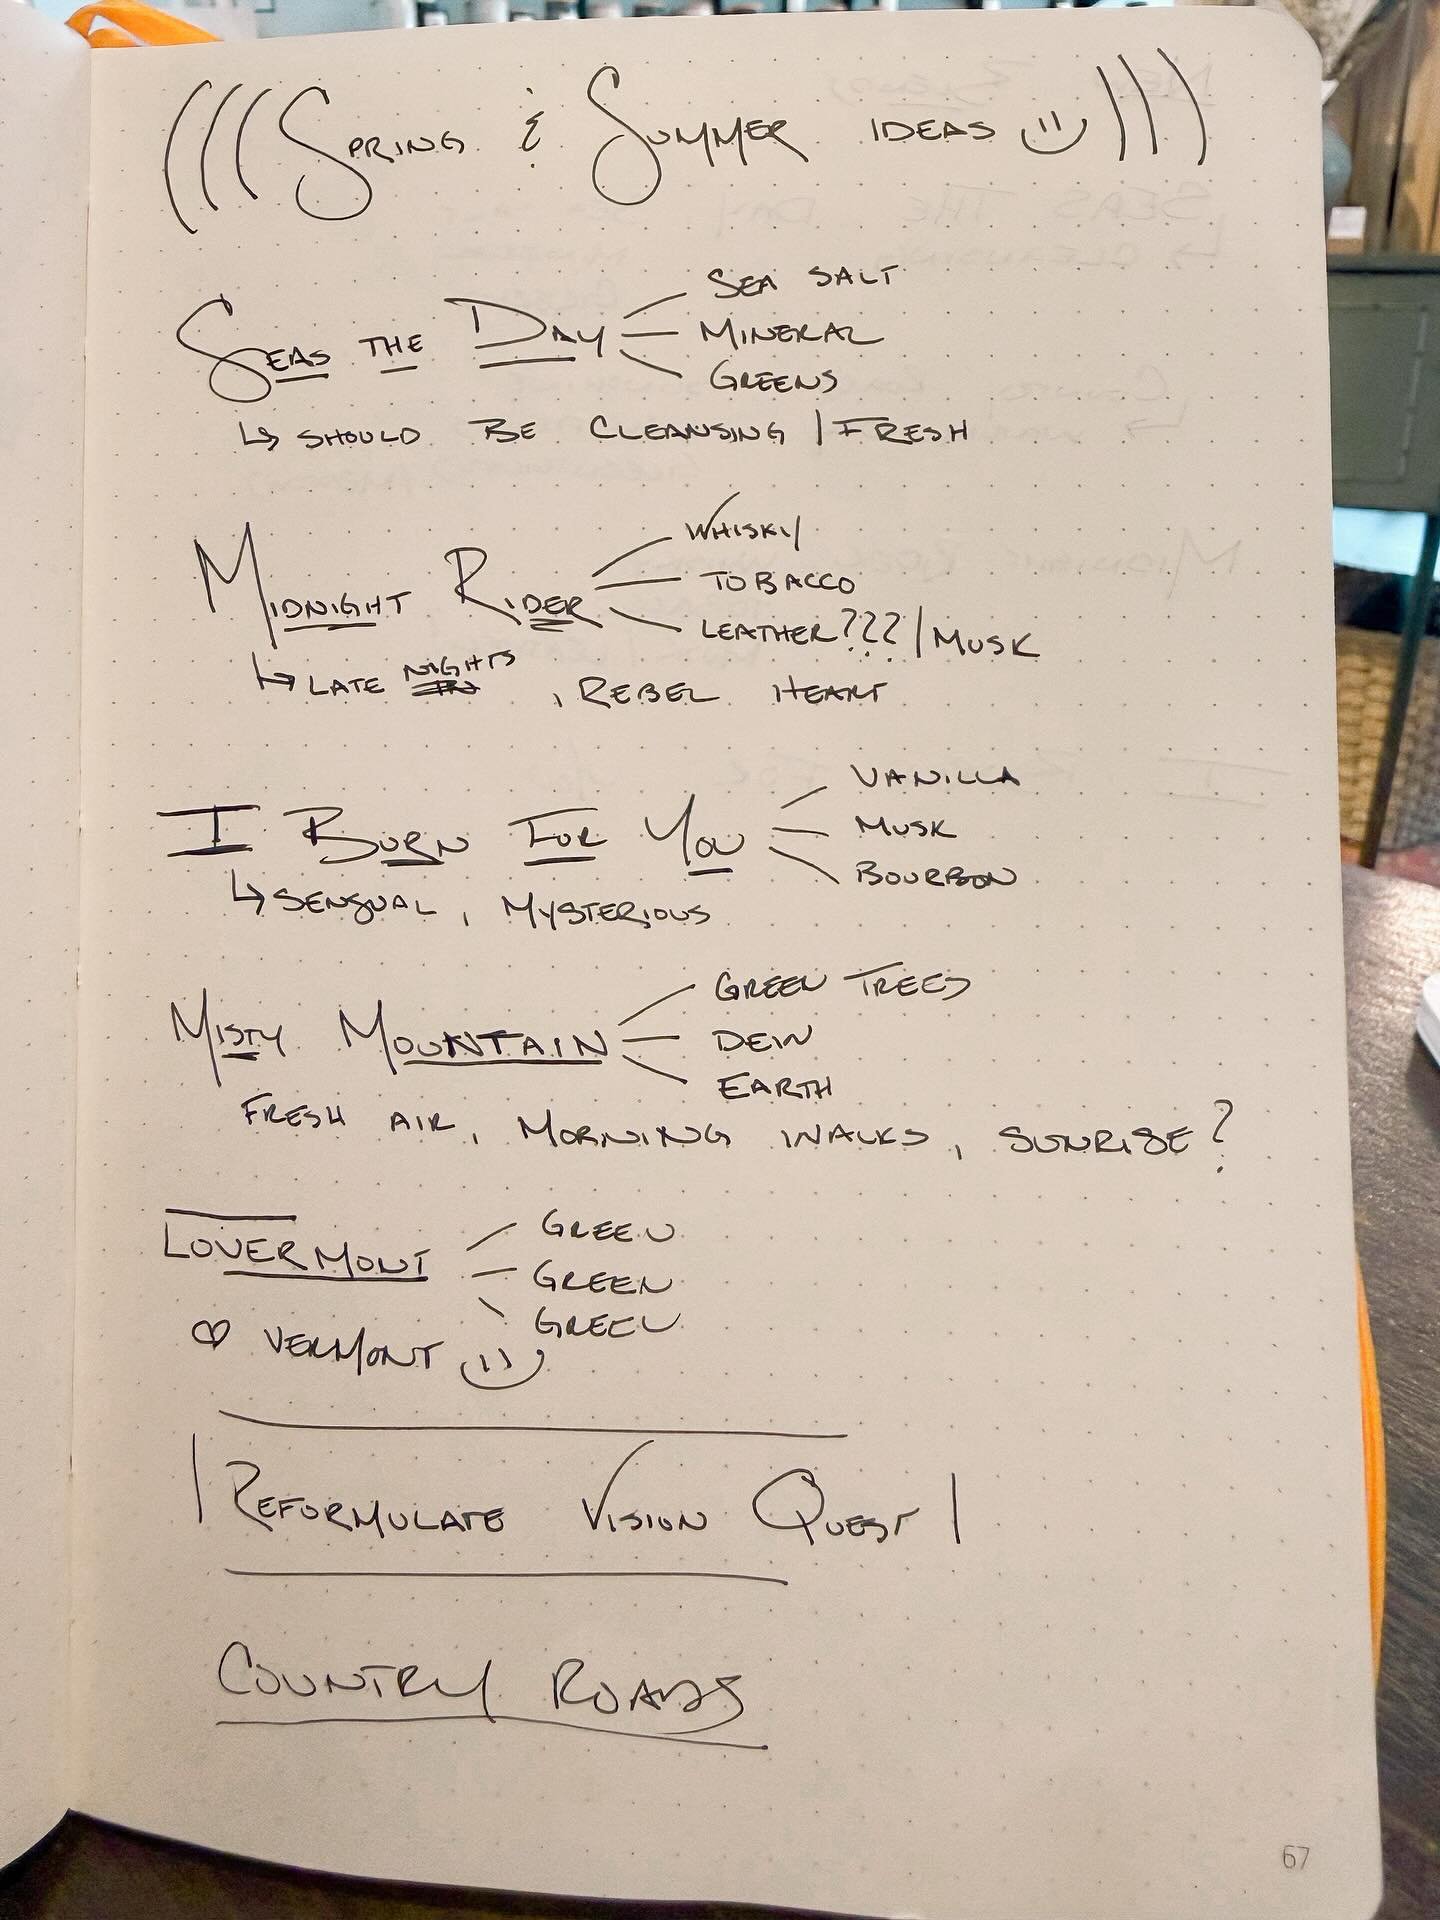 (((Spring & Summer ideas :))))
Seas the Day
Sea Salt
Mineral
Greens
↳ Should be cleansing / Fresh
Midnight Rider
Whisky
Tobacco
Leather??? / Musk
↳ Late nights, Rebel Heart
I Burn For You
Vanilla
Musk
Bourbon
↳ Sensual, Mysterious
Misty Mountain
Green Trees
Dew
Earth
Fresh air, Morning walks, Sunrise?
Lovermont
Green
Green
Green
♡ Vermont :)
|Reformulate Vision Quest|
Country Roads
67